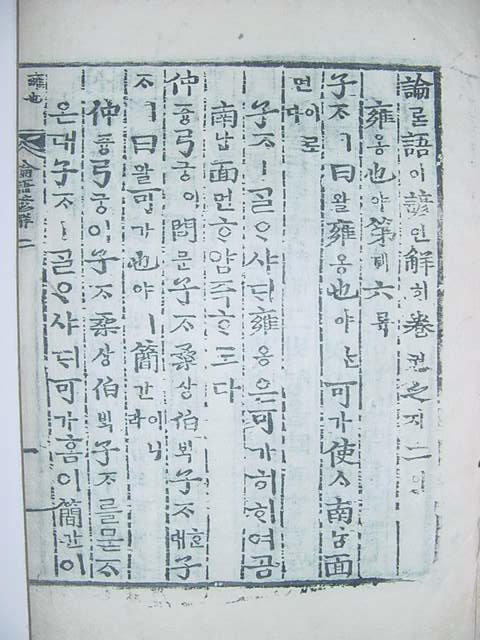 論론語어諺언解ᄒᆡ卷권之지二이
雍옹也야第뎨六륙
子ᄌᆞㅣ曰왈雍옹也야ᄂᆞᆫ可가使ᄉᆞ南남面
면이로다
子ᄌᆞㅣᄀᆞᆯᄋᆞ샤ᄃᆡ雍옹은可가히ᄒᆞ여곰
南남面면ᄒᆞ암즉ᄒᆞ도다
仲듕弓궁이問문子ᄌᆞ桑상伯ᄇᆡᆨ子ᄌᆞᄒᆞᆫ대子
ᄌᆞㅣ曰왈可가也야ㅣ簡간이니라
仲듕弓궁이子ᄌᆞ桑상伯ᄇᆡᆨ子ᄌᆞ를묻ᄌᆞ
온대子ᄌᆞㅣᄀᆞᆯᄋᆞ샤ᄃᆡ可가홈이簡간이
雍也
論語諺解二
一